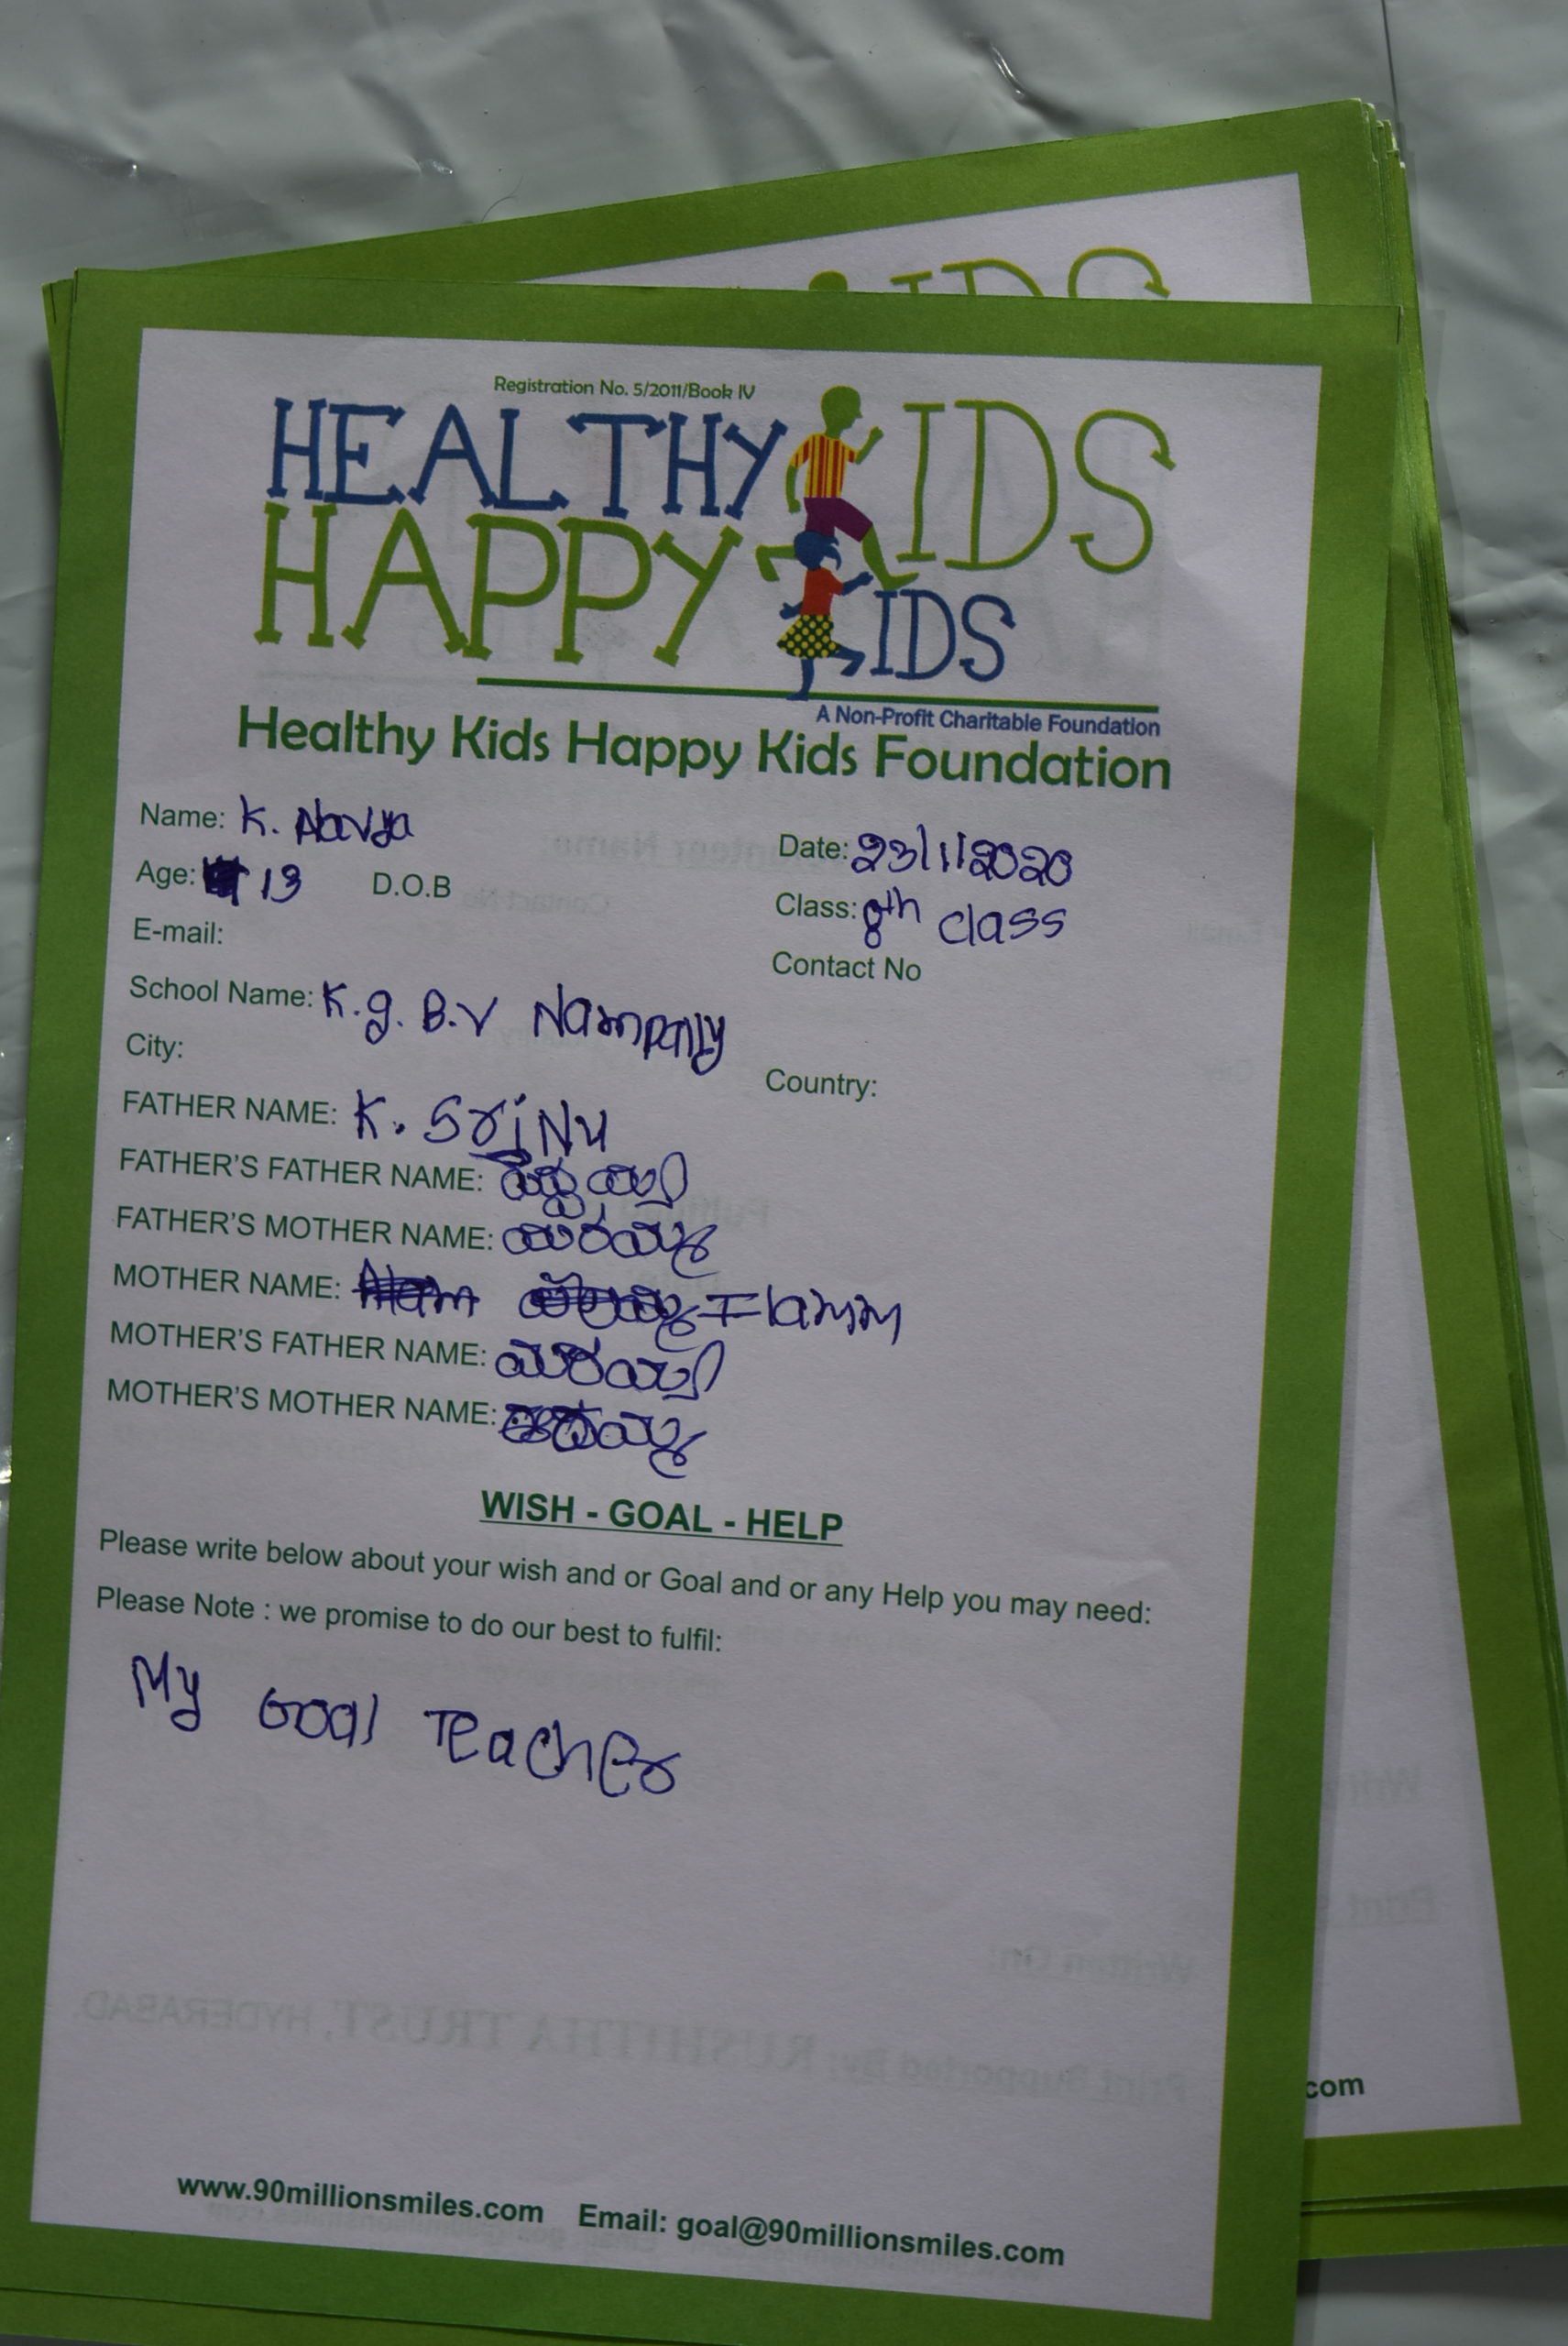 IDS
Registration No. 5/2011/Book IV
HEALTHY KIDS
HAPPY KIDS
A Non-Profit Charitable Foundation
Healthy Kids Happy Kids Foundation
Name: K. Navya
Date: 23/1/2020
Age: 13 D.O.B
Class: 8th class
E-mail:
Contact No
School Name: K.g.B.V Nampally
City:
Country:
FATHER NAME: K. SriNu
FATHER'S FATHER NAME:
FATHER'S MOTHER NAME:
MOTHER NAME:
MOTHER'S FATHER NAME:
MOTHER'S MOTHER NAME:
WISH - GOAL - HELP
Please write below about your wish and or Goal and or any Help you may need:
Please Note : we promise to do our best to fulfil:
My Goal Teacher
www.90millionsmiles.com Email: goal@90millionsmiles.com
com